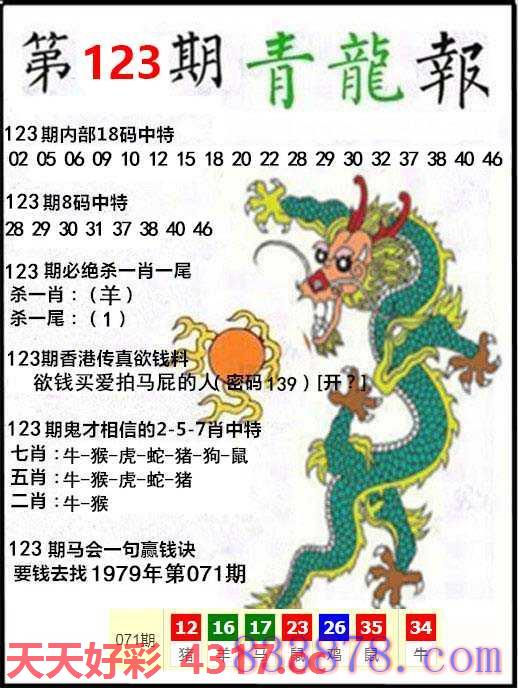 第123期青龍報
123期内部18码中特
02 05 06 09 10 12 15 18 20 22 28 29 30 32 37 38 40 46
123期8码中特
28 29 30 31 37 38 40 46
123期必绝杀一肖一尾
杀一肖：（羊）
杀一尾：（1）
123期香港传真欲钱料
欲钱买爱拍马屁的人（密码139）[开？]
123期鬼才相信的2-5-7肖中特
七肖：牛-猴-虎-蛇-猪-狗-鼠
五肖：牛-猴-虎-蛇-猪
二肖：牛-猴
123期马会一句赢钱诀
要钱去找1979年第071期
071期 12 16 17 23 26 35 34
猪 羊 马 鼠 鸡 鼠 牛
天天好彩 4317.cc